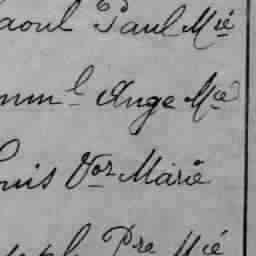 aoul Paul Mie
mml Ange Mie
ouis Vor Marie
eph Pre Mie